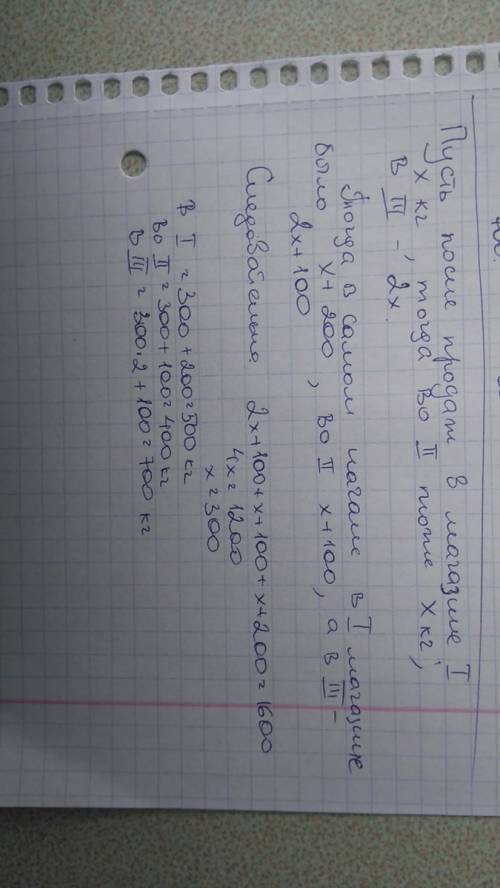 Пусть после продаж в магазине I
х кг, тогда во II тоже х кг,
в III - 2х.
Тогда в самом начале в I магазине
было х+200, во II х+100, а в III -
2х+100
Следовательно 2х+100+х+100+х+200=1600
4х=1200
х=300
В I = 300+200=500 кг
Во II = 300+100=400 кг
В III = 300·2+100=700 кг